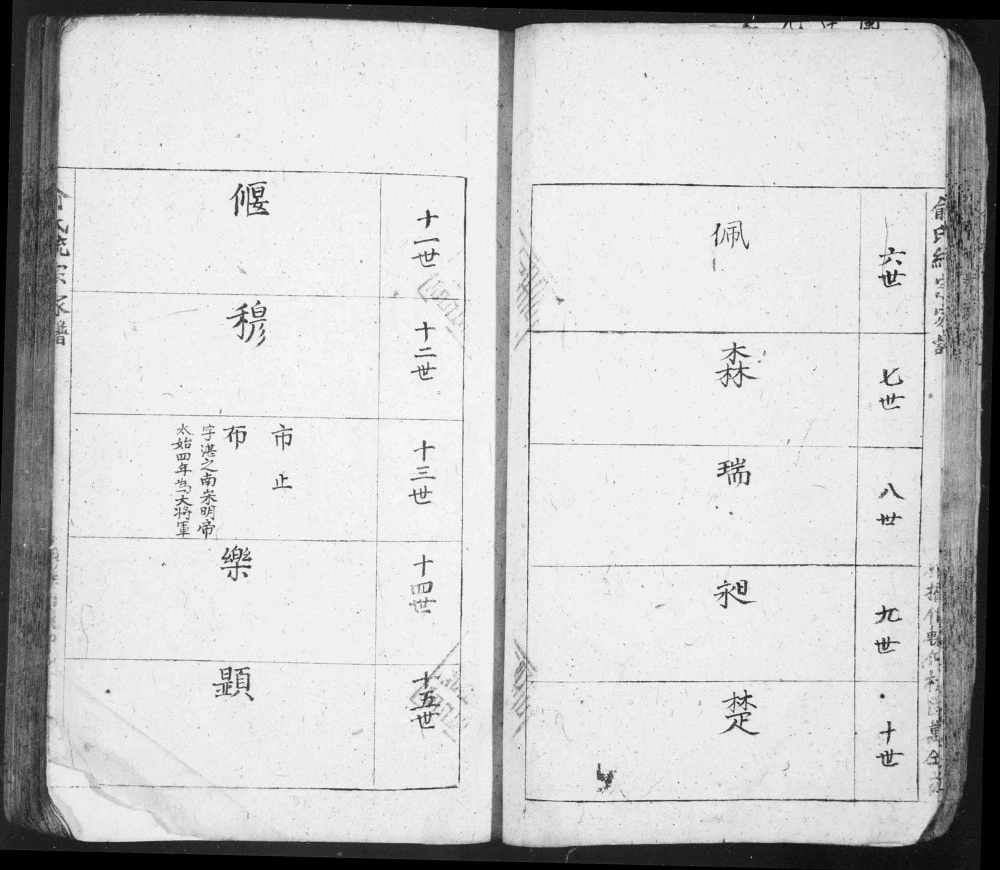 六世
佩
七世
森
八世
瑞
九世
昶
十世
楚
十一世
偃
十二世
穆
十三世
市 止
布
字湛之南宋明帝
太始四年為大將軍
十四世
樂
十五世
顕
俞氏統宗家譜